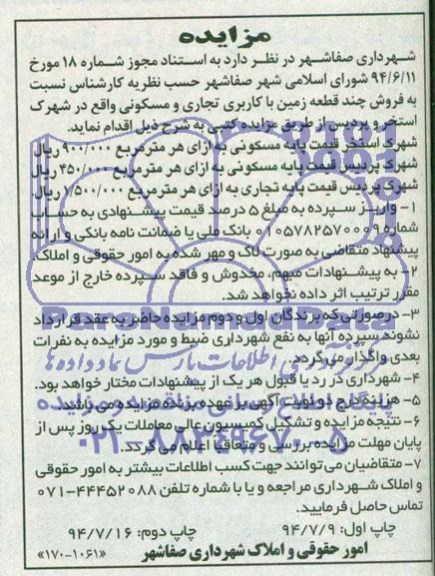 مزایده
شهرداری صفاشهر در نظر دارد به استناد مجوز شماره ۱۸ مورخ
۹۴/۶/۱۱ شورای اسلامی شهر صفاشهر حسب نظریه کارشناس نسبت
به فروش چند قطعه زمین با کاربری تجاری و مسکونی واقع در شهرک
استخر و پردیس از طریق مزایده کتبی به شرح ذیل اقدام نماید.
شهرک استخر قیمت پایه مسکونی به ازای هر مترمربع ۹۰۰/۰۰۰ ریال
شهرک پردیس قیمت پایه مسکونی به ازای هر مترمربع ۴۵۰/۰۰۰ ریال
شهرک پردیس قیمت پایه تجاری به ازای هر مترمربع ۱/۵۰۰/۰۰۰ ریال
۱- واریز سپرده به مبلغ ۵ درصد قیمت پیشنهادی به حساب
شماره ۰۱۰۵۷۸۲۵۷۰۰۰۹ بانک ملی یا ضمانت نامه بانکی و ارائه
پیشنهاد متقاضی به صورت لاک و مهر شده به امور حقوقی و املاک.
۲- به پیشنهادات مبهم، مخدوش و فاقد سپرده خارج از موعد
مقرر ترتیب اثر داده نخواهد شد.
۳- درصورتی که برندگان اول و دوم مزایده حاضر به عقد قرارداد
نشوند سپرده آنها به نفع شهرداری ضبط و مورد مزایده به نفرات
بعدی واگذار می گردد.
۴- شهرداری در رد یا قبول هر یک از پیشنهادات مختار خواهد بود.
۵- هزینه درج دو نوبت آگهی بر عهده برنده مزایده می باشد.
۶- نتیجه مزایده و تشکیل کمیسیون عالی معاملات یک روز پس از
پایان مهلت مزایده بررسی و متعاقبا اعلام می گردد.
۷- متقاضیان می توانند جهت کسب اطلاعات بیشتر به امور حقوقی
و املاک شهرداری مراجعه و یا با شماره تلفن ۴۴۴۵۲۰۸۸-۰۷۱
تماس حاصل فرمایید.
چاپ اول: ۹۴/۷/۹ چاپ دوم: ۹۴/۷/۱۶
امور حقوقی و املاک شهرداری صفاشهر «۱۰۶۱-۱۷۰»